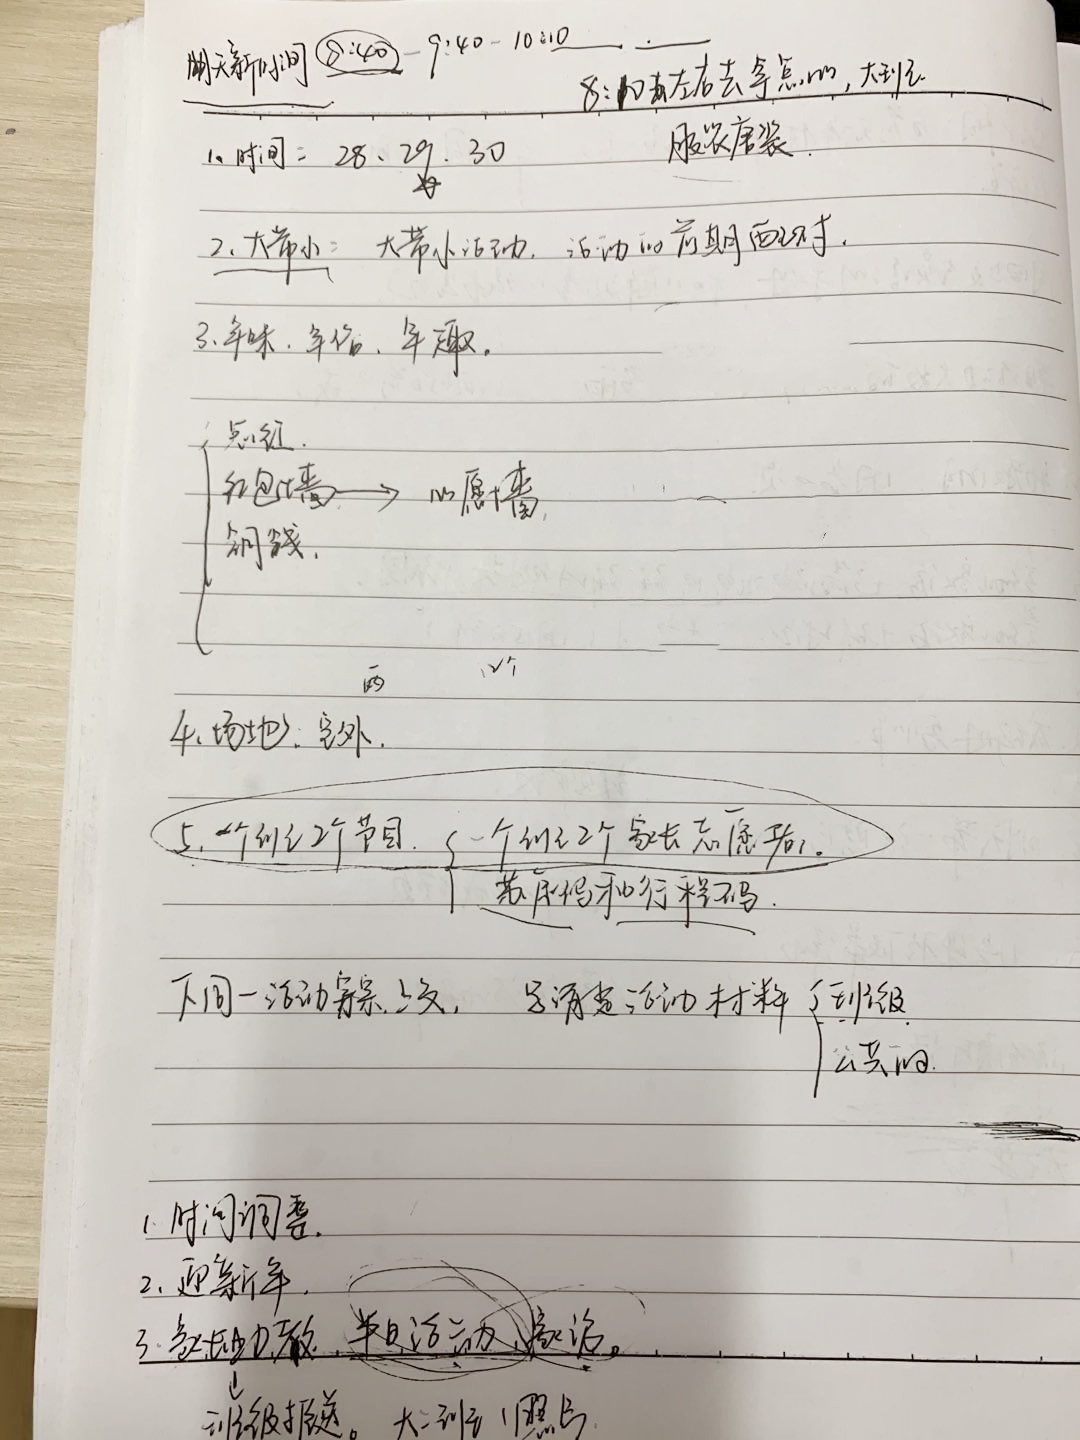 明天新时间 8:40 - 9:40 - 10:10
8:40左右去等点, 大班
服装唐装.
1. 时间: 28、29、30
2. 大带小: 大带小活动. 活动的前期面对.
3. 年味、年俗、年趣.
点红.
红包墙 → 心愿墙.
铜钱.
两 12个
4. 场地: 室外.
5. 一个班2个节目. 一个班2个家长志愿者.
苏康码和行程码.
下周一活动方案上交, 活动材料 班级
公共的.
1. 时间调整.
2. 迎新年.
3. 家长助教, 半日活动、家访。
班级推送。 大二班 照片